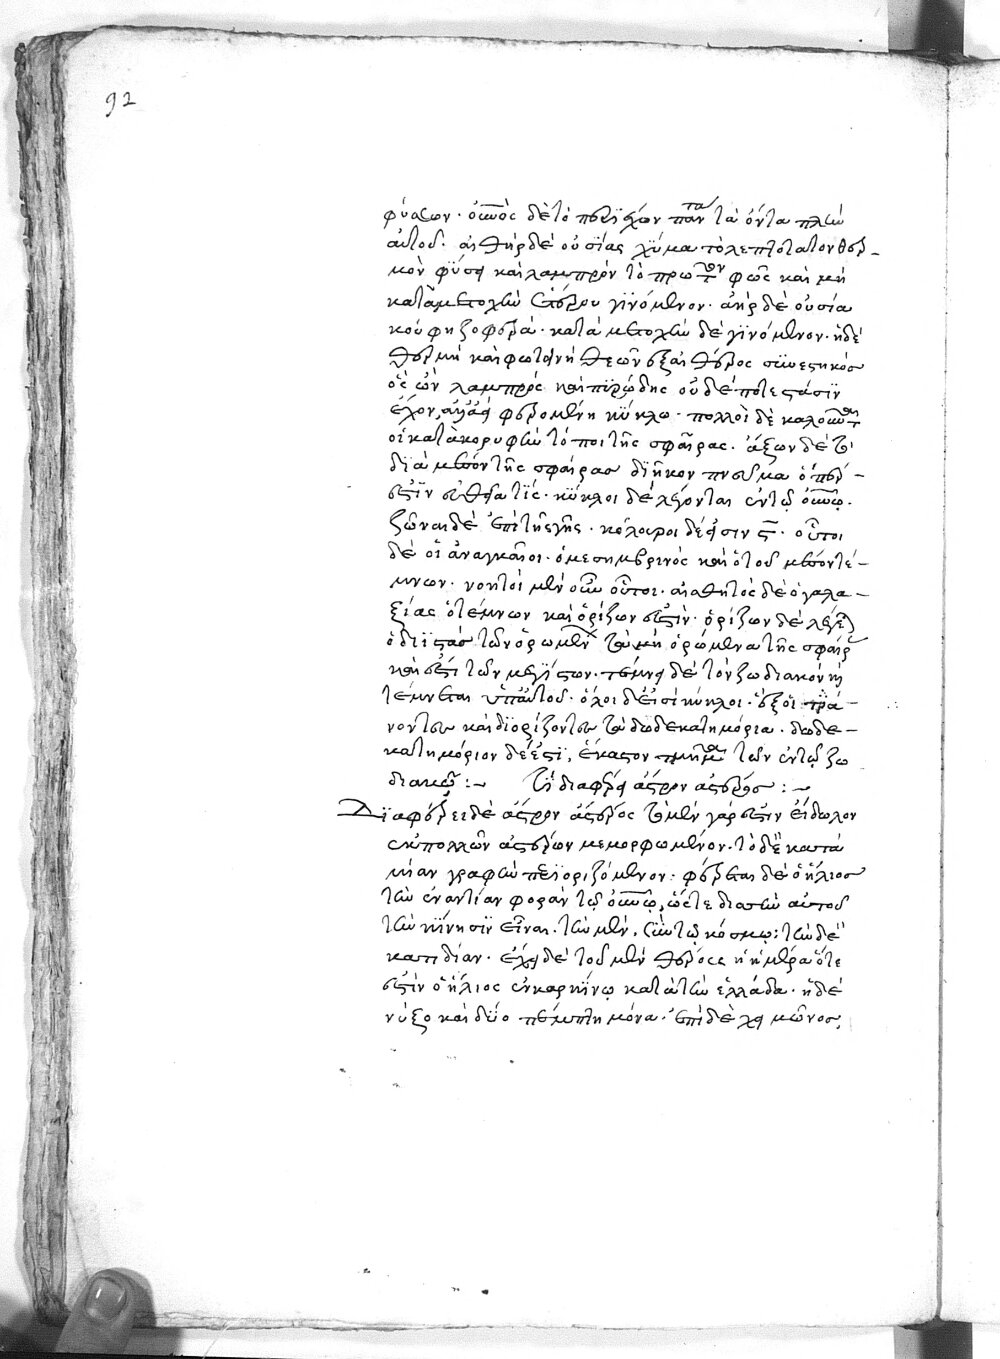 92
φύσεων · οὐνὸς δὲ τὸ περιέχον πάντα τὰ ὄντα πλὴν
αὐτοῦ · αἰθὴρ δὲ οὐσίας χῦμα τὸ λεπτότατον θερ-
μὸν φύσει καὶ λαμπρὸν τὸ πρῶτον φῶς καὶ μὴ
κατὰ μετοχὴν ἑτέρου γινόμενον · ἀὴρ δὲ οὐσία
κούφη ζοφερὰ · κατὰ μετοχὴν δὲ γινόμενον · ἡδὲ
θερμὴ καὶ φωτεινὴ θεῶν ἐξ αἰθέρος συνεστηκὸς
ὃς ὢν λαμπρὸς καὶ πυρώδης οὐδέποτε στάσιν
ἔχον, ἀλλ' ἀεὶ φερομένη κύκλω · πολλοὶ δὲ καλοῦνται
οἱ κατὰ κορυφὴν τόποι τῆς σφαίρας · ἄξων δὲ τὸ
διὰ μέσον τῆς σφαίρας διῆκον πνεῦμα ὅπερ
ἐστὶν εὐθεῖα τίς · κύκλοι δὲ λέγονται ἐν τῷ οὐνῷ ·
ζῶναι δὲ ἐπὶ τῆς γῆς · κόλουροι δέ εἰσιν · οὗτοι
δὲ οἱ ἀναγκαῖοι · ὁ μεσημβρινὸς καὶ ὁ τοῦ μέσον τέ-
μνων · νοητοὶ μὲν οὖν οὗτοι · αἰσθητὸς δὲ ὁ γαλα-
ξίας ὁ τέμνων καὶ ὁρίζων ἐστὶν · ὁρίζων δὲ λέγεται
ὁ διϊστὰς τῶν ὁρωμένων τὰ μὴ ὁρώμενα τῆς σφαίρας
καὶ ἐστὶ τῶν μεγίστων · τέμνει δὲ τὸν ζωδιακὸν ἢ
τέμνεται ὑπ' αὐτοῦ · ὅλοι δὲ εἰσὶ κύκλοι ·
καὶ διορίζοντες τὰ δωδεκατημόρια · δωδε-
κατημόριον δὲ ἐστὶ, ἕκαστον τμῆμα τῶν ἐν τῷ ζω
διακῷ :~ Τί διαφέρει ἄστρον ἀστέρος :~
Διαφέρει δὲ ἄστρον ἀστέρος τὸ μὲν γάρ ἐστιν εἴδωλον
ἐκ πολλῶν ἀστέρων μεμορφωμένον · τὸ δὲ κατὰ
μίαν γραφὴν περιοριζόμενον : φέρεται δὲ ὁ ἥλιος
τὴν ἐναντίαν φορὰν τῷ οὐνῷ, ὥστε διττὴν αὐτοῦ
τὴν κίνησιν εἶναι · τὴν μὲν, σὺν τῷ κόσμῳ : τὴν δὲ
κατ' ἰδίαν · ἔχει δὲ τοῦ μὲν θέρους ἡ ἡμέρα ὅτε
ἐστὶν ὁ ἥλιος ἐν καρκίνῳ κατὰ τὴν ἑλλάδα · ἡ δὲ
νὺξ καὶ δύο πέμπτη μόνα · ἐπὶ δὲ χειμῶνος,